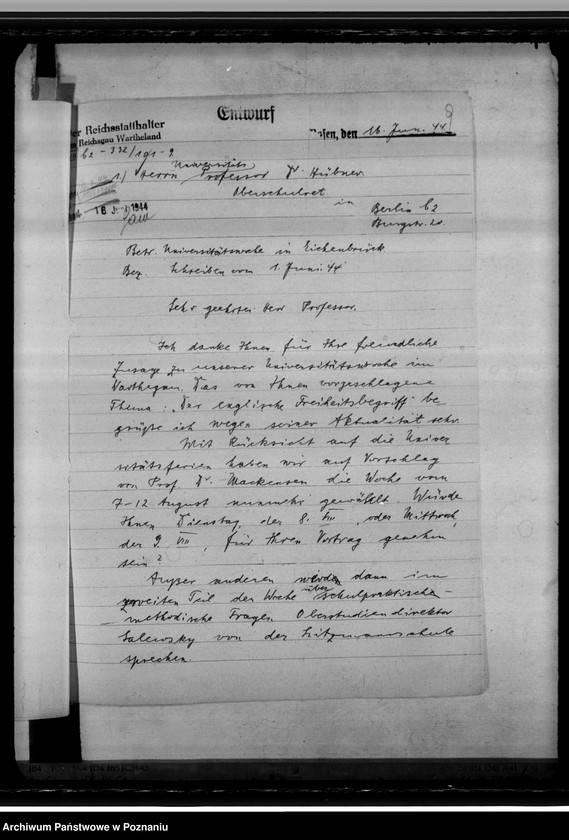 Entwurf
9
Der Reichsstatthalter
im Reichsgau Wartheland
Posen, den 16. Juni 44
62 - 332/191-9
1) Herrn Universitäts
Professor Dr Hübner
Oberschulrat
16. Juni 1944
in
Berlin C2
Burgstr. 20.
Betr. Universitätswoche in Eichenbrück
Bez. Schreiben vom 1. Juni 44
Sehr geehrter Herr Professor.
Ich danke Ihnen für Ihre freundliche
Zusage zu unserer Universitätswoche im
Warthegau. Das von Ihnen vorgeschlagene
Thema: „Der englische Freiheitsbegriff" be-
grüße ich wegen seiner Aktualität sehr.
Mit Rücksicht auf die Univer
sitätsferien haben wir auf Vorschlag
von Prof. Dr. Mackensen die Woche vom
7-12 August nunmehr gewählt. Würde
Ihnen Dienstag, der 8. VIII, oder Mittwoch,
der 9. VIII, für Ihren Vortrag genehm
sein?
Außer anderen werden dann im
zweiten Teil der Woche über schulpraktische-
methodische Fragen Oberstudiendirektor
Salewsky von der Litzmannschule
sprechen.
Archiwum Państwowe w Poznaniu